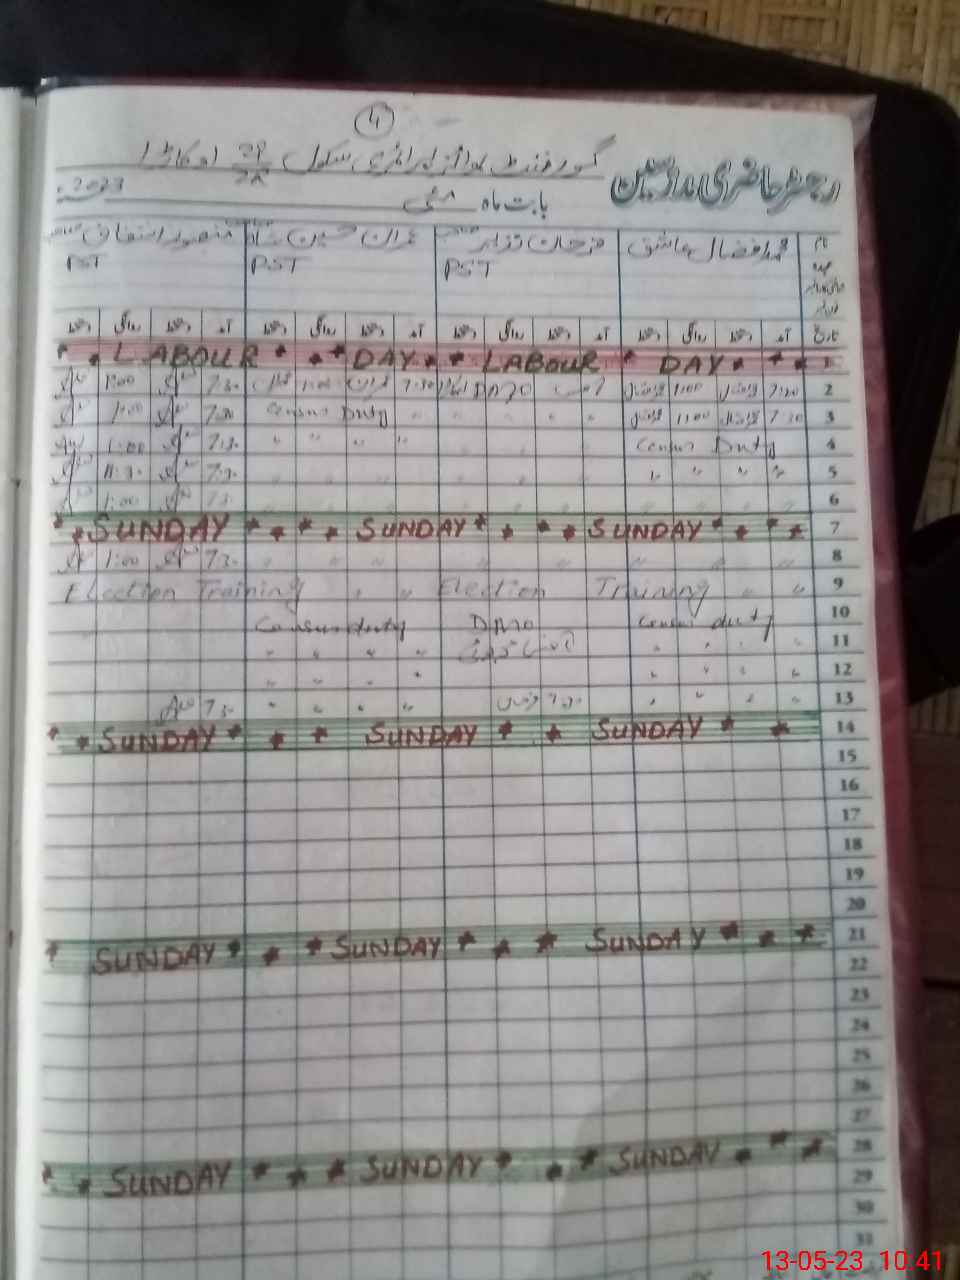 4
گورنمنٹ بوائز پرائمری سکول 28/2R اوکاڑا
رجسٹر حاضری مدرسین
بابت ماہ مئی 2023
نام محمد افضال عاشق فرحان نذیر عمران حسین شاہ منصور اشفاق
عہدہ PST PST PST
تاریخ آمد دستخط روانگی دستخط آمد دستخط روانگی دستخط آمد دستخط روانگی دستخط آمد دستخط روانگی دستخط
* * LABOUR * * * DAY * * LABOUR * DAY * * * 1
1:00 7:30 1:00 عمران 7:30 DMO آفس افضال 1:00 افضال 7:30 2
1:00 7:30 Census Duty " " " " افضال 11:00 افضال 7:30 3
1:00 7:30 " " " " " " " " Census Duty 4
11:30 7:30 " " " " " " " " " " " " 5
1:00 7:30 " " " " " " " " " " " " 6
* * SUNDAY * * * * SUNDAY * * * * SUNDAY * * * * 7
1:00 7:30 " " " " " " " " " " " " 8
Election Training " " Election Training " " 9
Census duty DMO Census duty 10
" " " " آفس " " " " 11
" " " " " " " " 12
7:30 " " " " 7:30 " " " " 13
* * SUNDAY * * * SUNDAY * * SUNDAY * * 14
15
16
17
18
19
20
* SUNDAY * * * SUNDAY * * * SUNDAY * * * 21
22
23
24
25
26
27
* * SUNDAY * * * SUNDAY * * * SUNDAY * * * 28
29
30
31
13-05-23 10:41